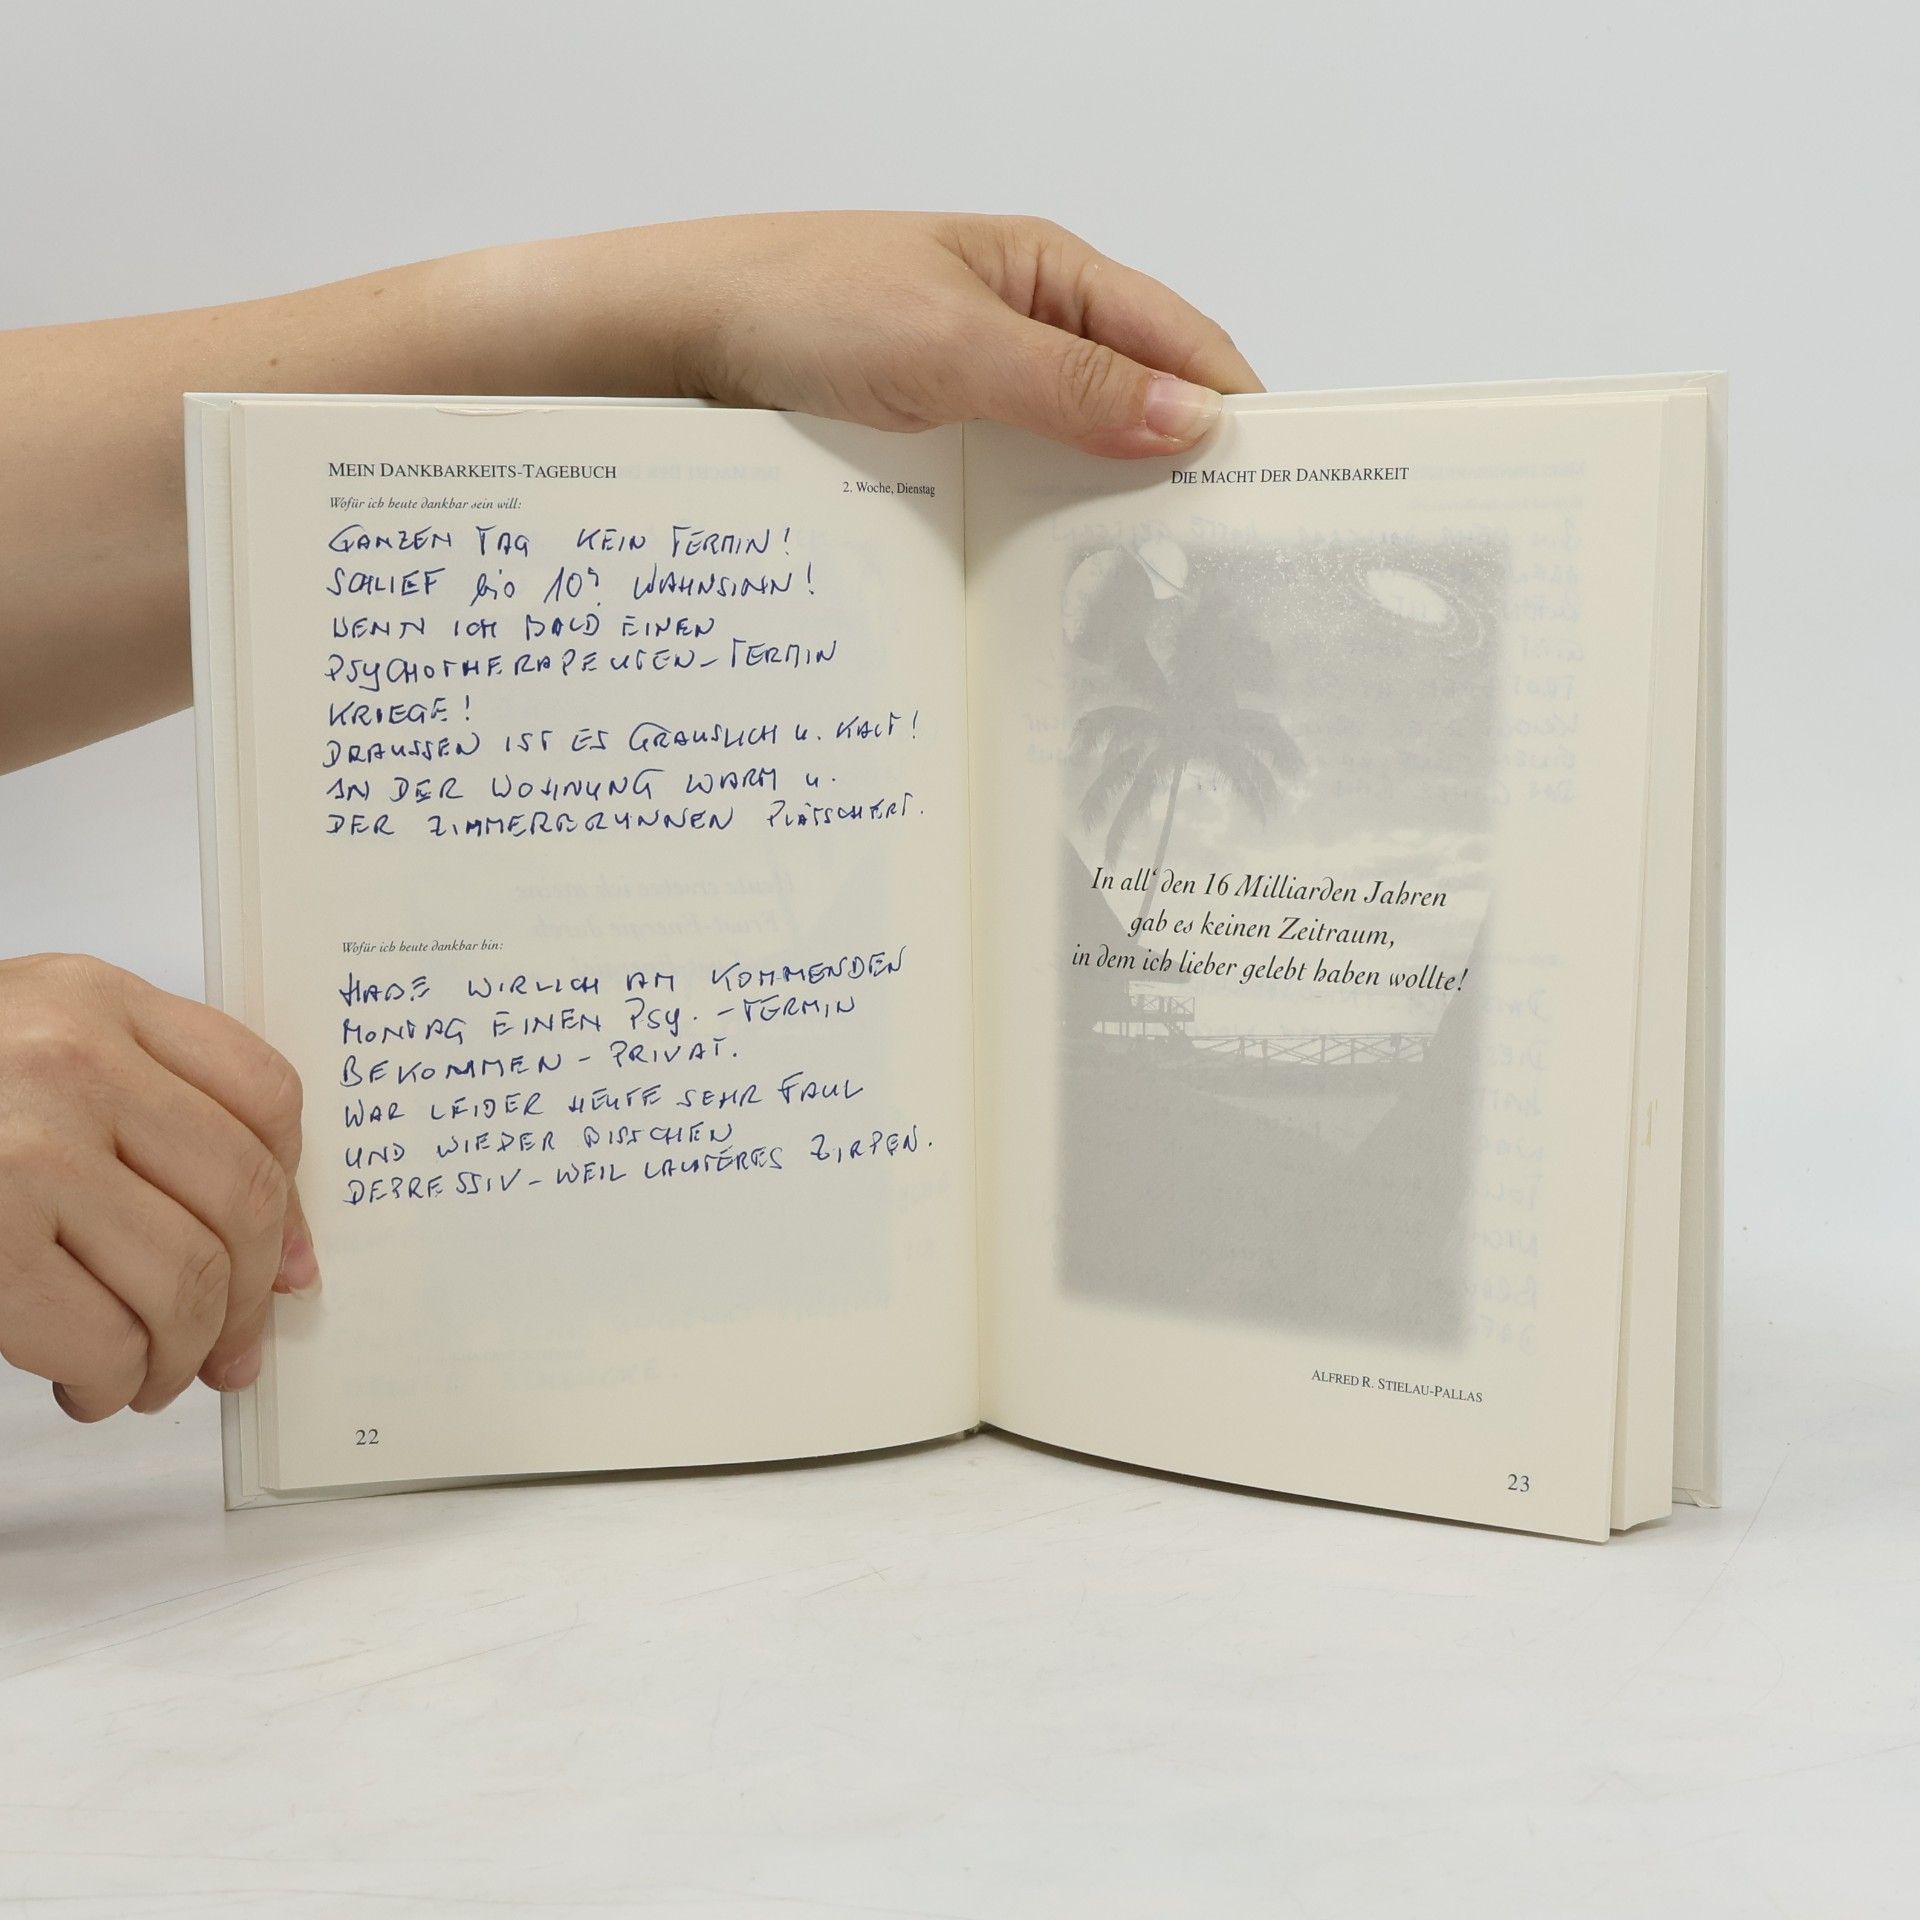 MEIN DANKBARKEITS-TAGEBUCH
2. Woche, Dienstag
Wofür ich heute dankbar sein will:
GANZEN TAG KEIN TERMIN!
SCHLIEF bis 10h WAHNSINN!
WENN ICH BALD EINEN
PSYCHOTHERAPEUTEN-TERMIN
KRIEGE!
DRAUSSEN IST ES GRAUSLICH u. KALT!
IN DER WOHNUNG WARM u.
DER ZIMMERBRUNNEN PLÄTSCHERT.
Wofür ich heute dankbar bin:
HABE WIRLICH AM KOMMENDEN
MONTAG EINEN PSY. - TERMIN
BEKOMMEN - PRIVAT.
WAR LEIDER HEUTE SEHR FAUL
UND WIEDER BISSCHEN
DEPRESSIV - WEIL LAUTERES ZIRPEN.
22
DIE MACHT DER DANKBARKEIT
In all' den 16 Milliarden Jahren
gab es keinen Zeitraum,
in dem ich lieber gelebt haben wollte!
ALFRED R. STIELAU-PALLAS
23